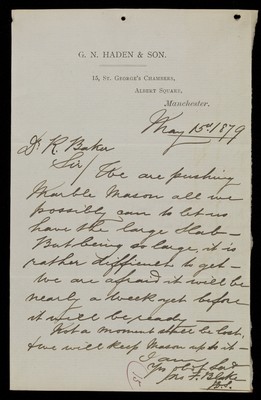 G. N. HADEN & SON.
15, ST. GEORGE'S CHAMBERS,
ALBERT SQUARE,
Manchester.
May 15th 1879
Dr. R. Baker
Sir/ We are pushing
Marble Mason all we
possibly can to let us
have the large Slab –
But being so large, it is
rather difficult to get –
We are afraid it will be
nearly a week yet before
it will be ready
Not a moment shall be lost,
& we will keep Mason up to it –
I am
Yr obt
F. Blake